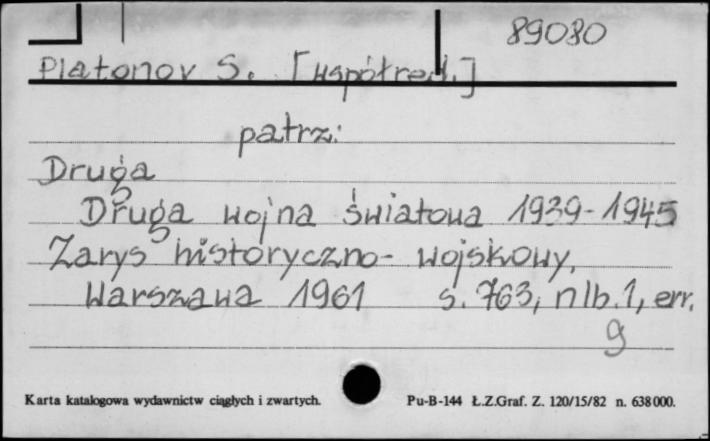 89080
Platonov S. [współred.]
patrz:
Druga
Druga wojna światowa 1939-1945
Zarys historyczno-wojskowy,
Warszawa 1961 s. 763, nlb. 1, err.
g
Karta katalogowa wydawnictw ciągłych i zwartych. Pu-B-144 Ł.Z.Graf. Z. 120/15/82 n. 638000.